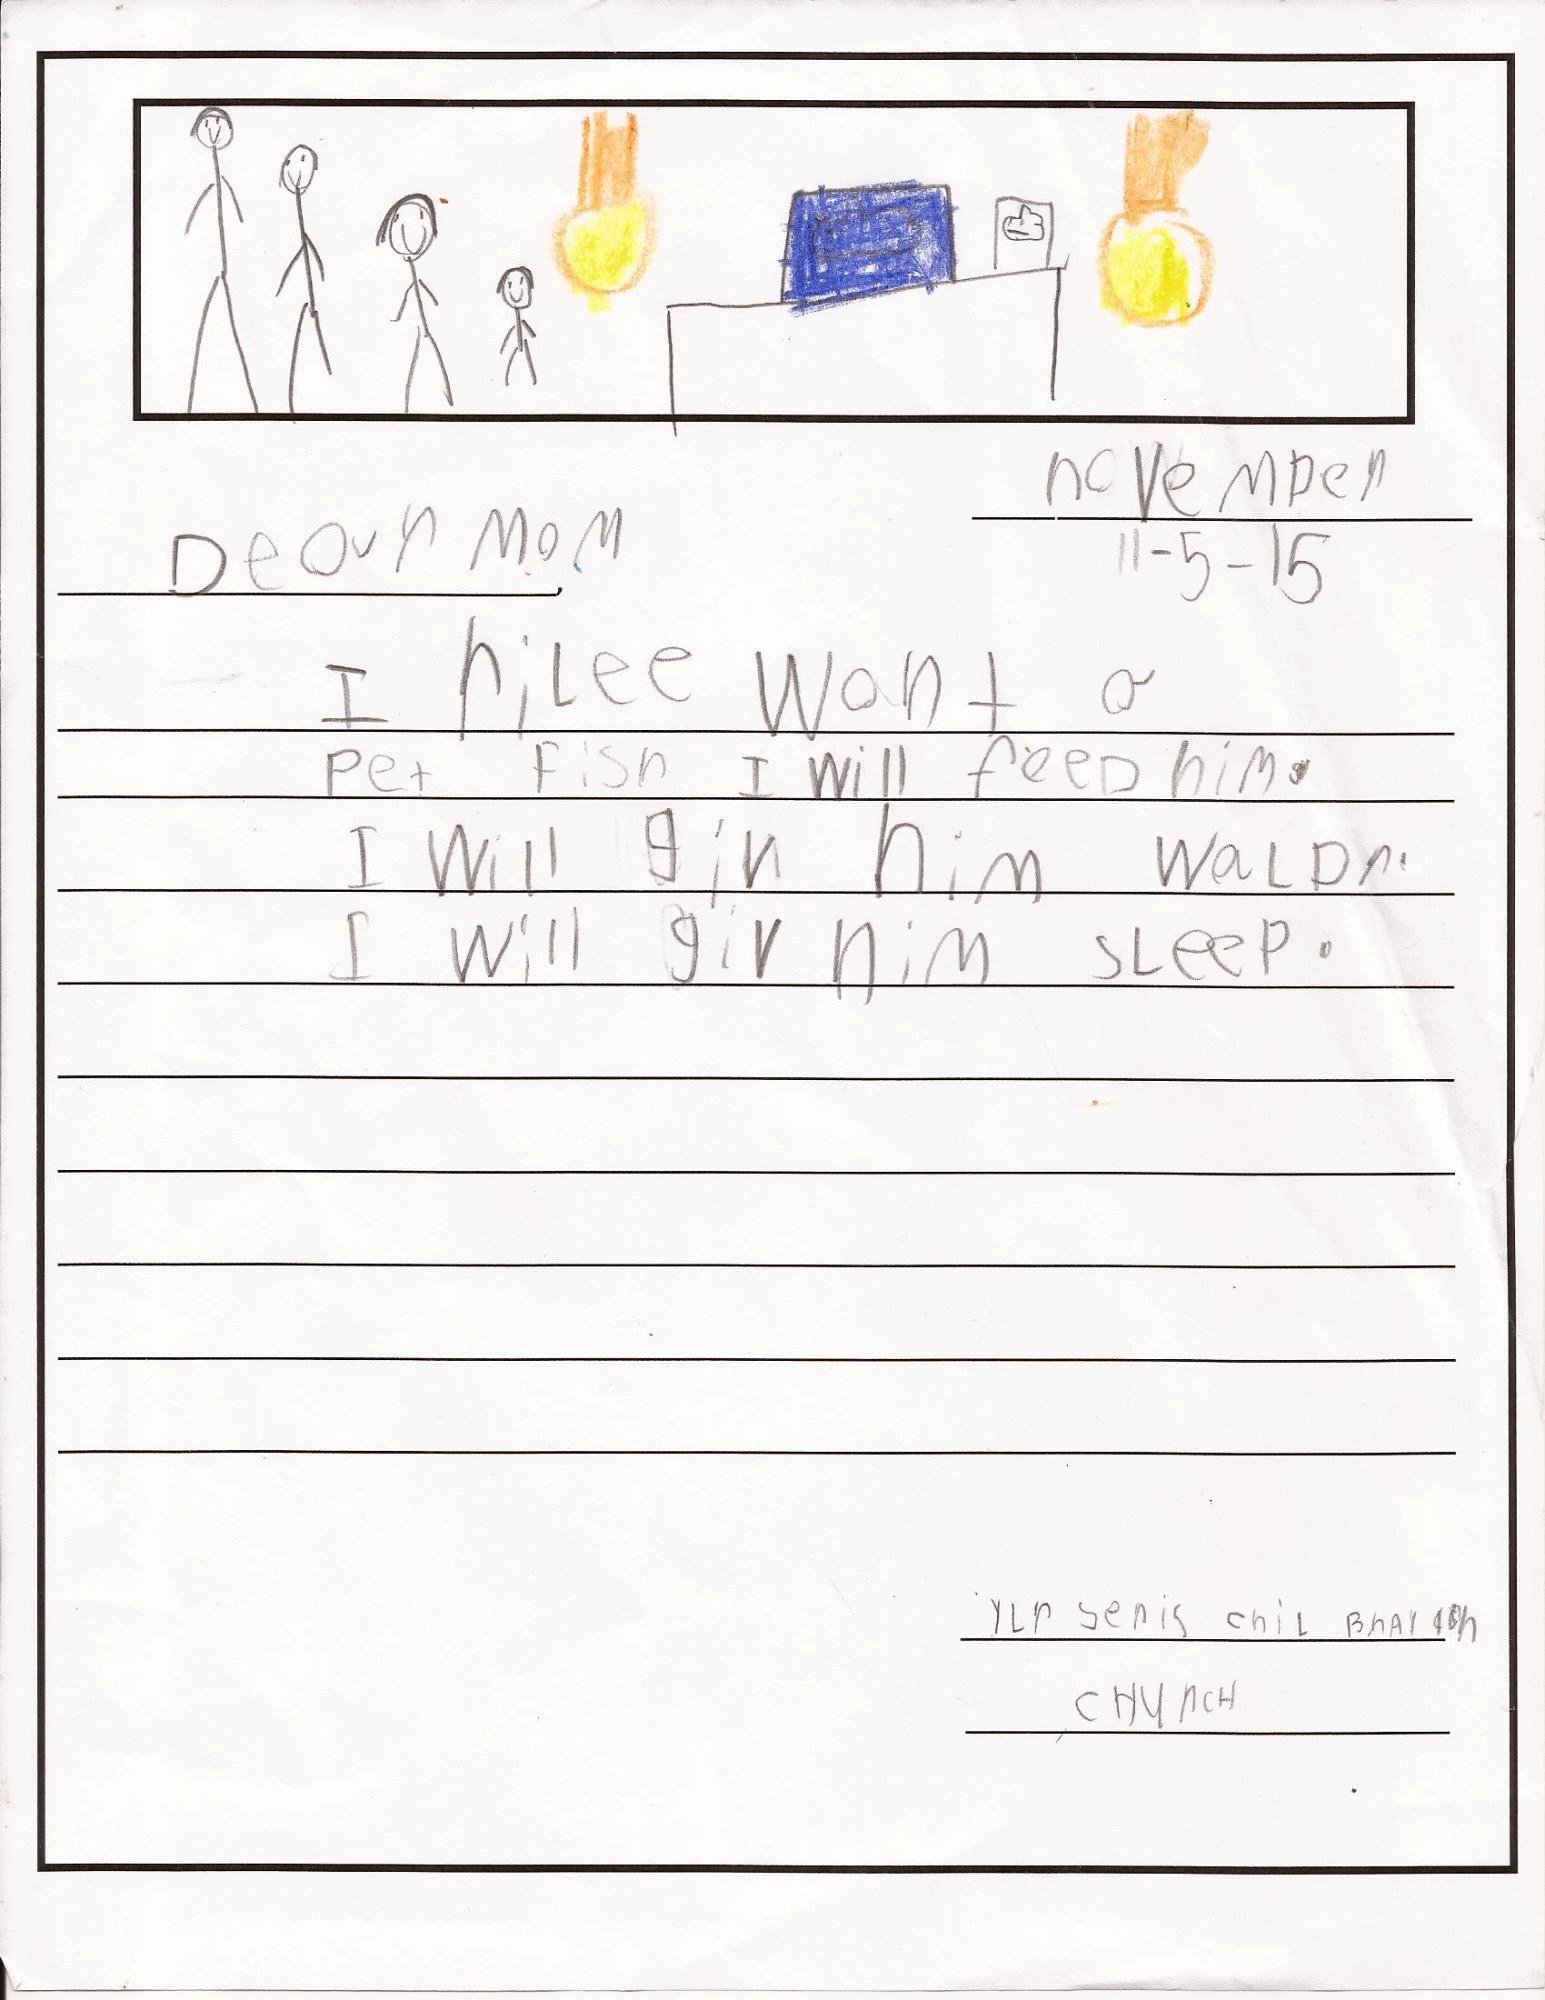 november
11-5-15
Dear Mom
I rilee want a
Pet Fish I will feed him.
I will giv him waldr.
I will giv him sleep.
ylr senis chil Brayden
CHURCH